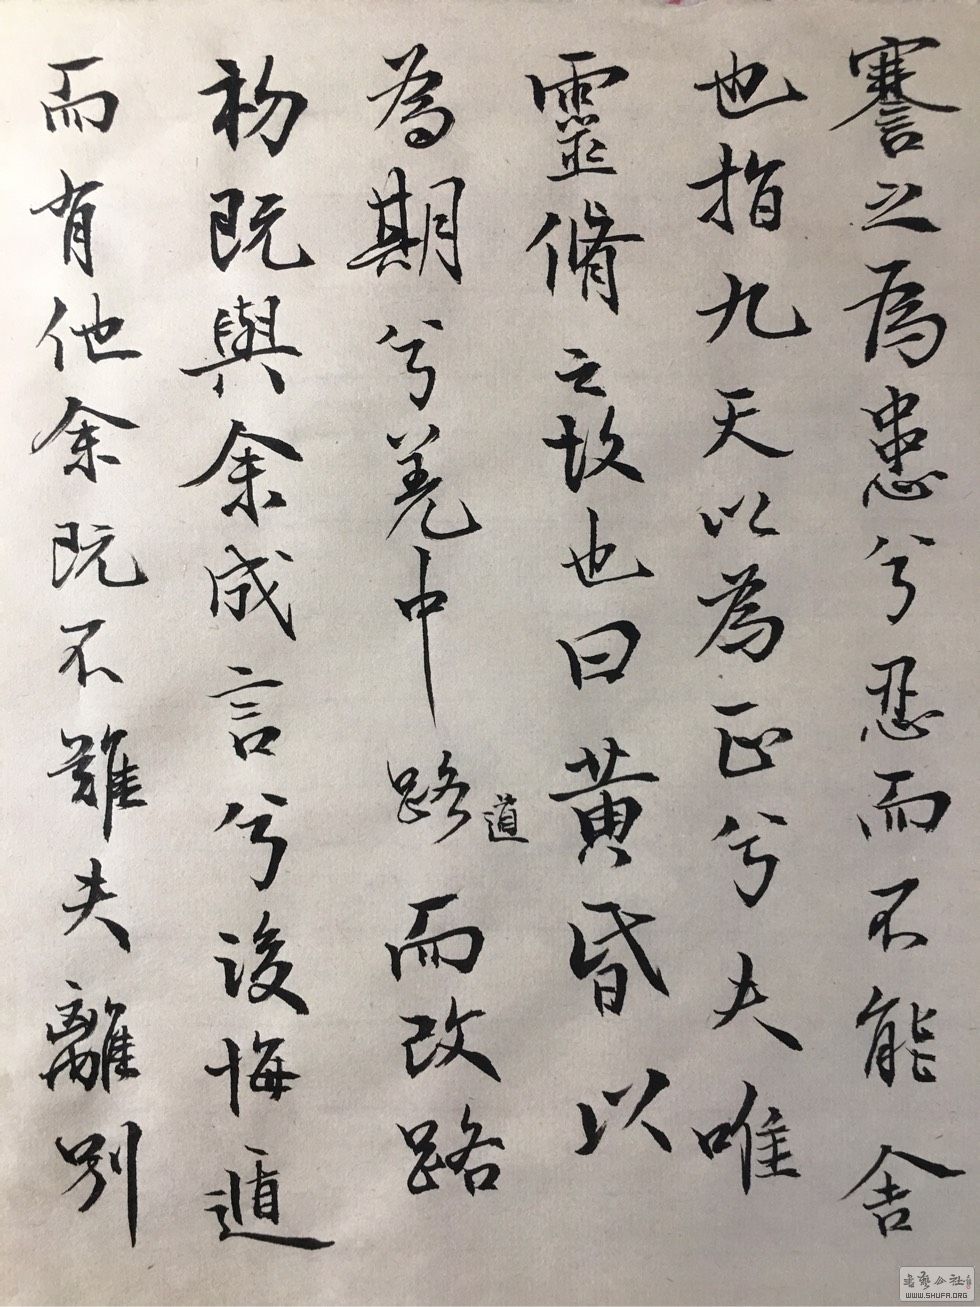 謇之為患兮忍而不能舍
也指九天以為正兮夫唯
靈脩之故也曰黄昏以
為期兮羌中路而改路
道
初既與余成言兮後悔遁
而有他余既不難夫離別
書藝公社
WWW.SHUFA.ORG